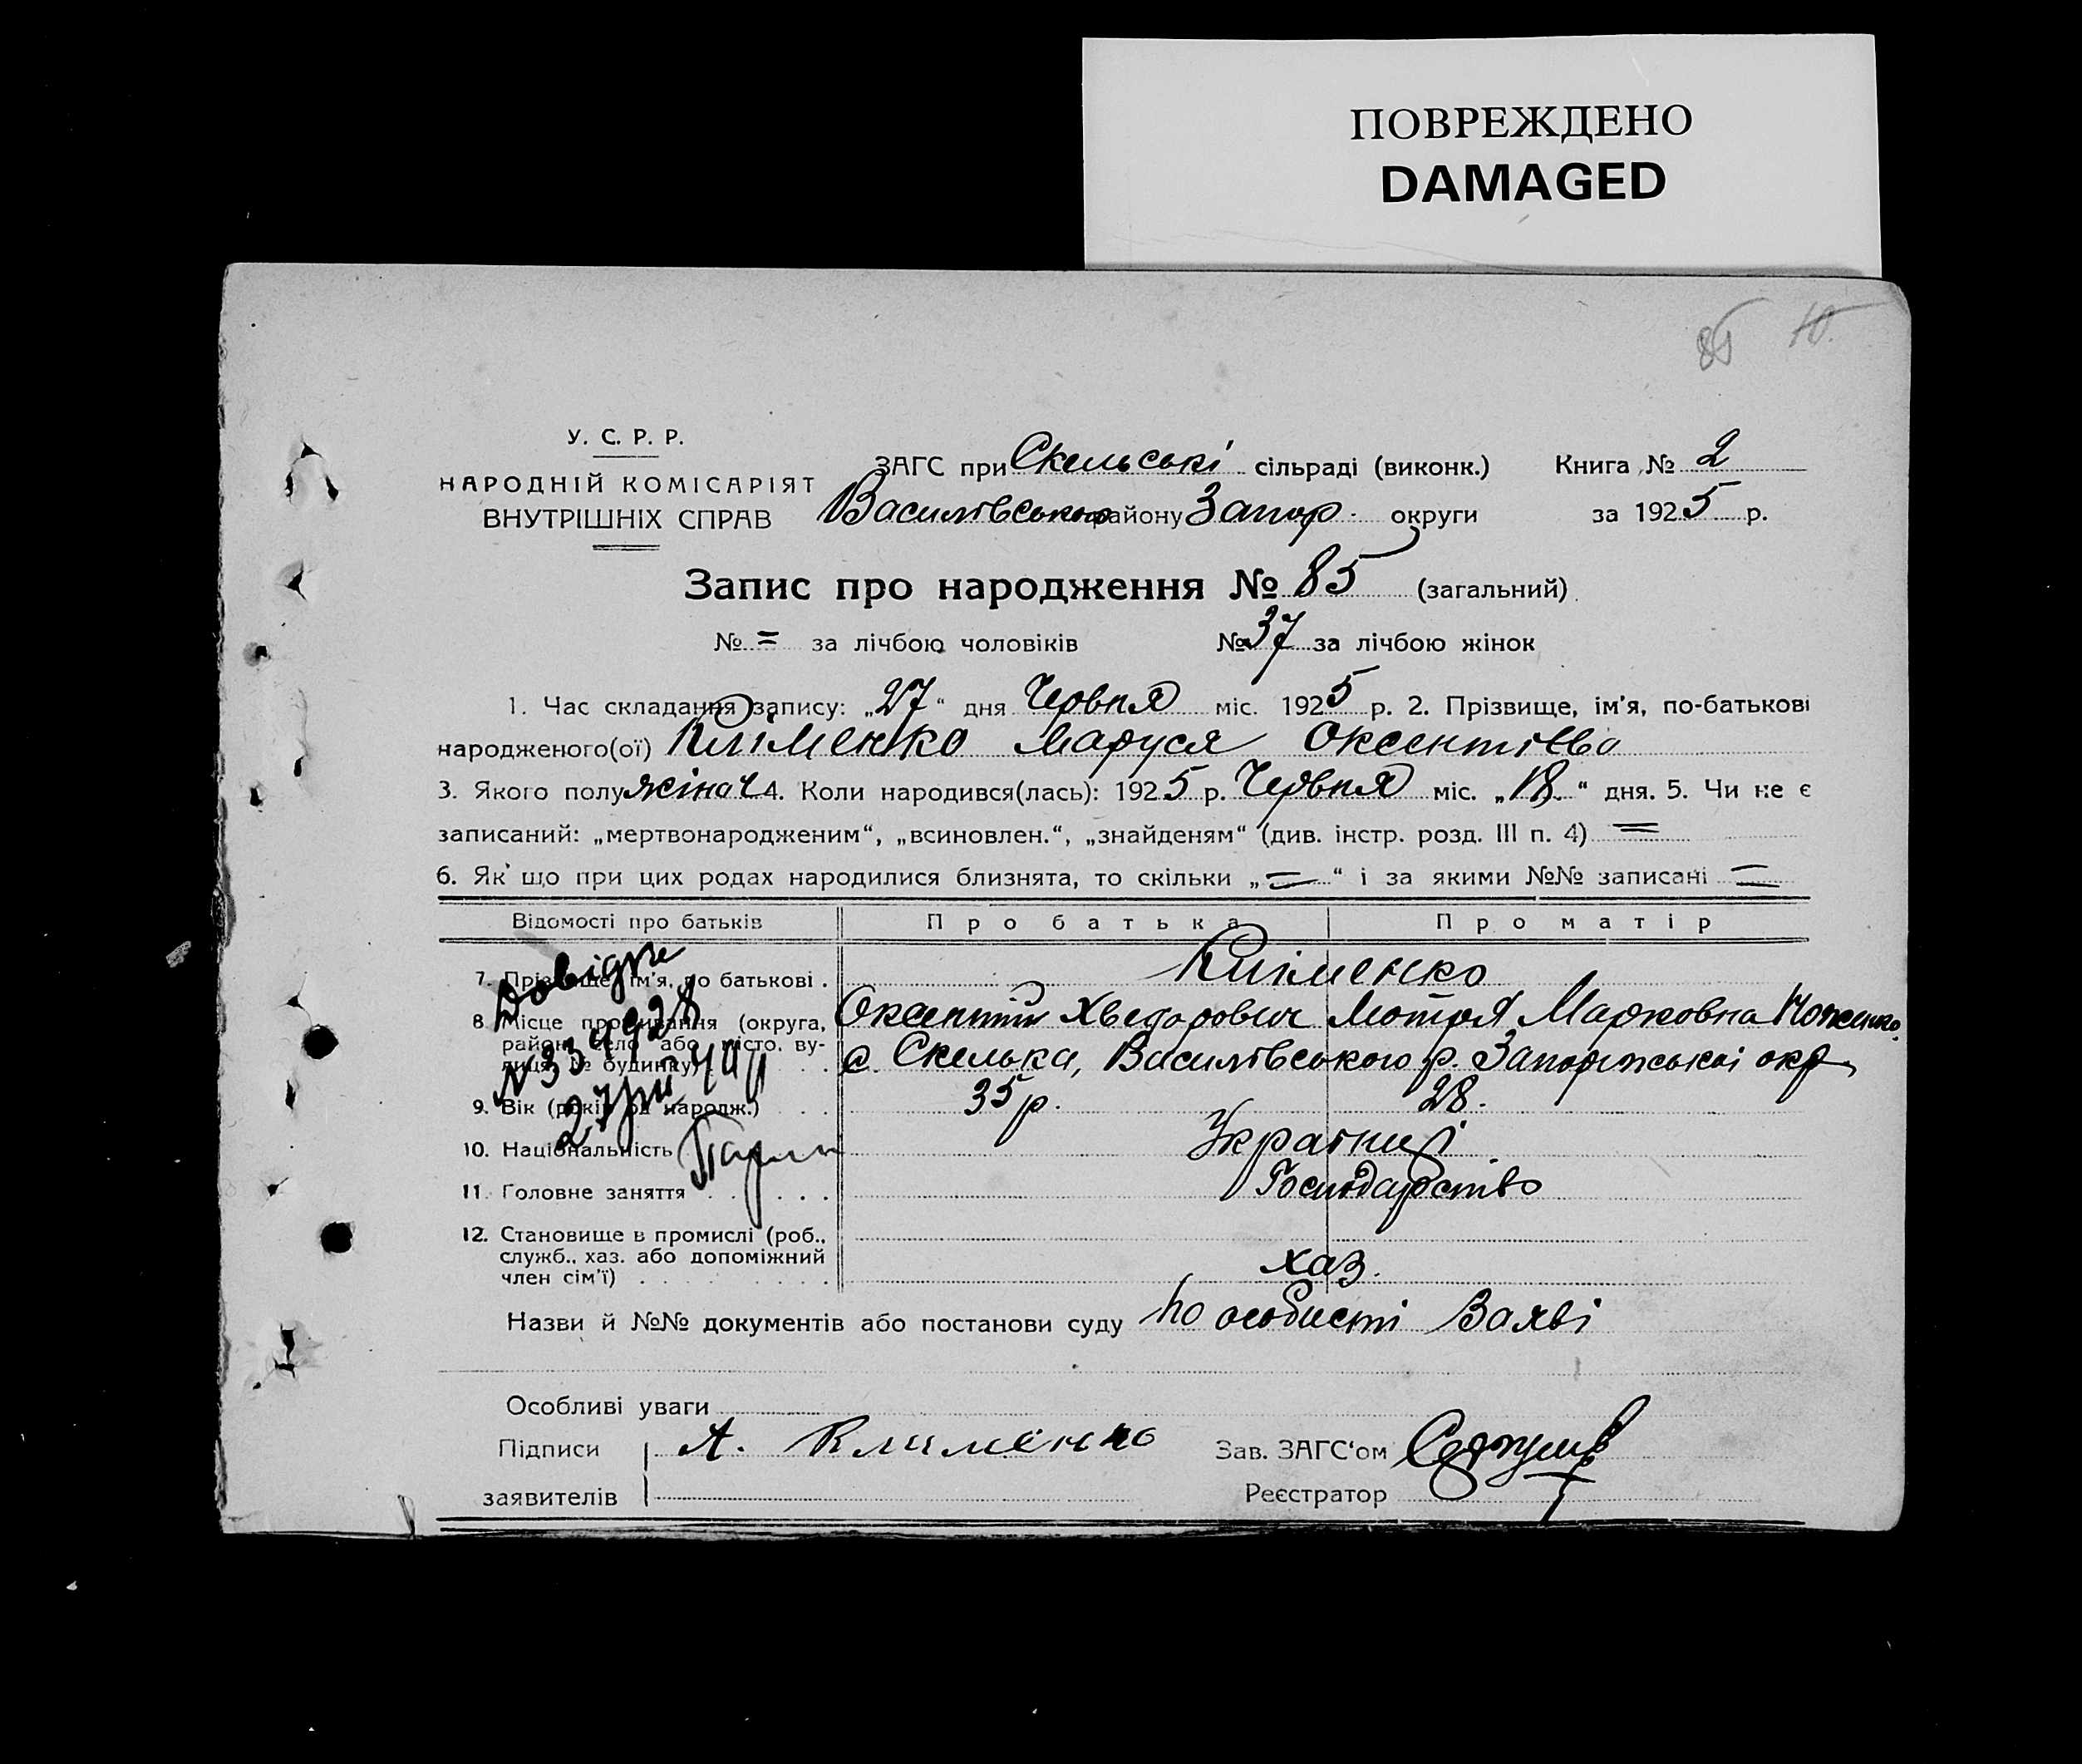 ПОВРЕЖДЕНО
DAMAGED
85
У. С. Р. Р.
НАРОДНІЙ КОМІСАРІЯТ
ВНУТРІШНІХ СПРАВ
ЗАГС при Скельські сільраді (виконк.) Книга № 2
Василівського району Запор. округи за 1925 р.
Запис про народження № 85 (загальний)
№ = за лічбою чоловіків № 37 за лічбою жінок
1. Час складання запису: „27“ дня Червня міс. 1925 р. 2. Прізвище, ім’я, по-батькові
народженого(ої) Кліменко Маруся Оксентіівва
3. Якого полу жіноч 4. Коли народився(лась): 1925 р. Червня міс. „18“ дня. 5. Чи не є
записаний: „мертвонародженим“, „всиновлен.“, „знайденям“ (див. інстр. розд. III п. 4) =
6. Як’ що при цих родах народилися близнята, то скільки „=“ і за якими №№ записані =
Відомості про батьків Про батька Про матір
7. Прізвище, ім’я, по батькові . Кліменко
8. Місце проживання (округа, Оксентій Хведорович Мотря Марковна
район, село або місто, ву-
лиця, № будинку) с. Скелька, Василівського р. Запоріжськоі окр
9. Вік (років од народж.) 35 р. 28.
10. Національність Украінці
11. Головне заняття Господарство
12. Становище в промислі (роб.,
служб., хаз. або допоміжний
член сім’ї) хаз.
Назви й №№ документів або постанови суду по особисті Заяві
Особливі уваги
Підписи А. Клименко Зав. ЗАГС‘ом
заявителів Реєстратор